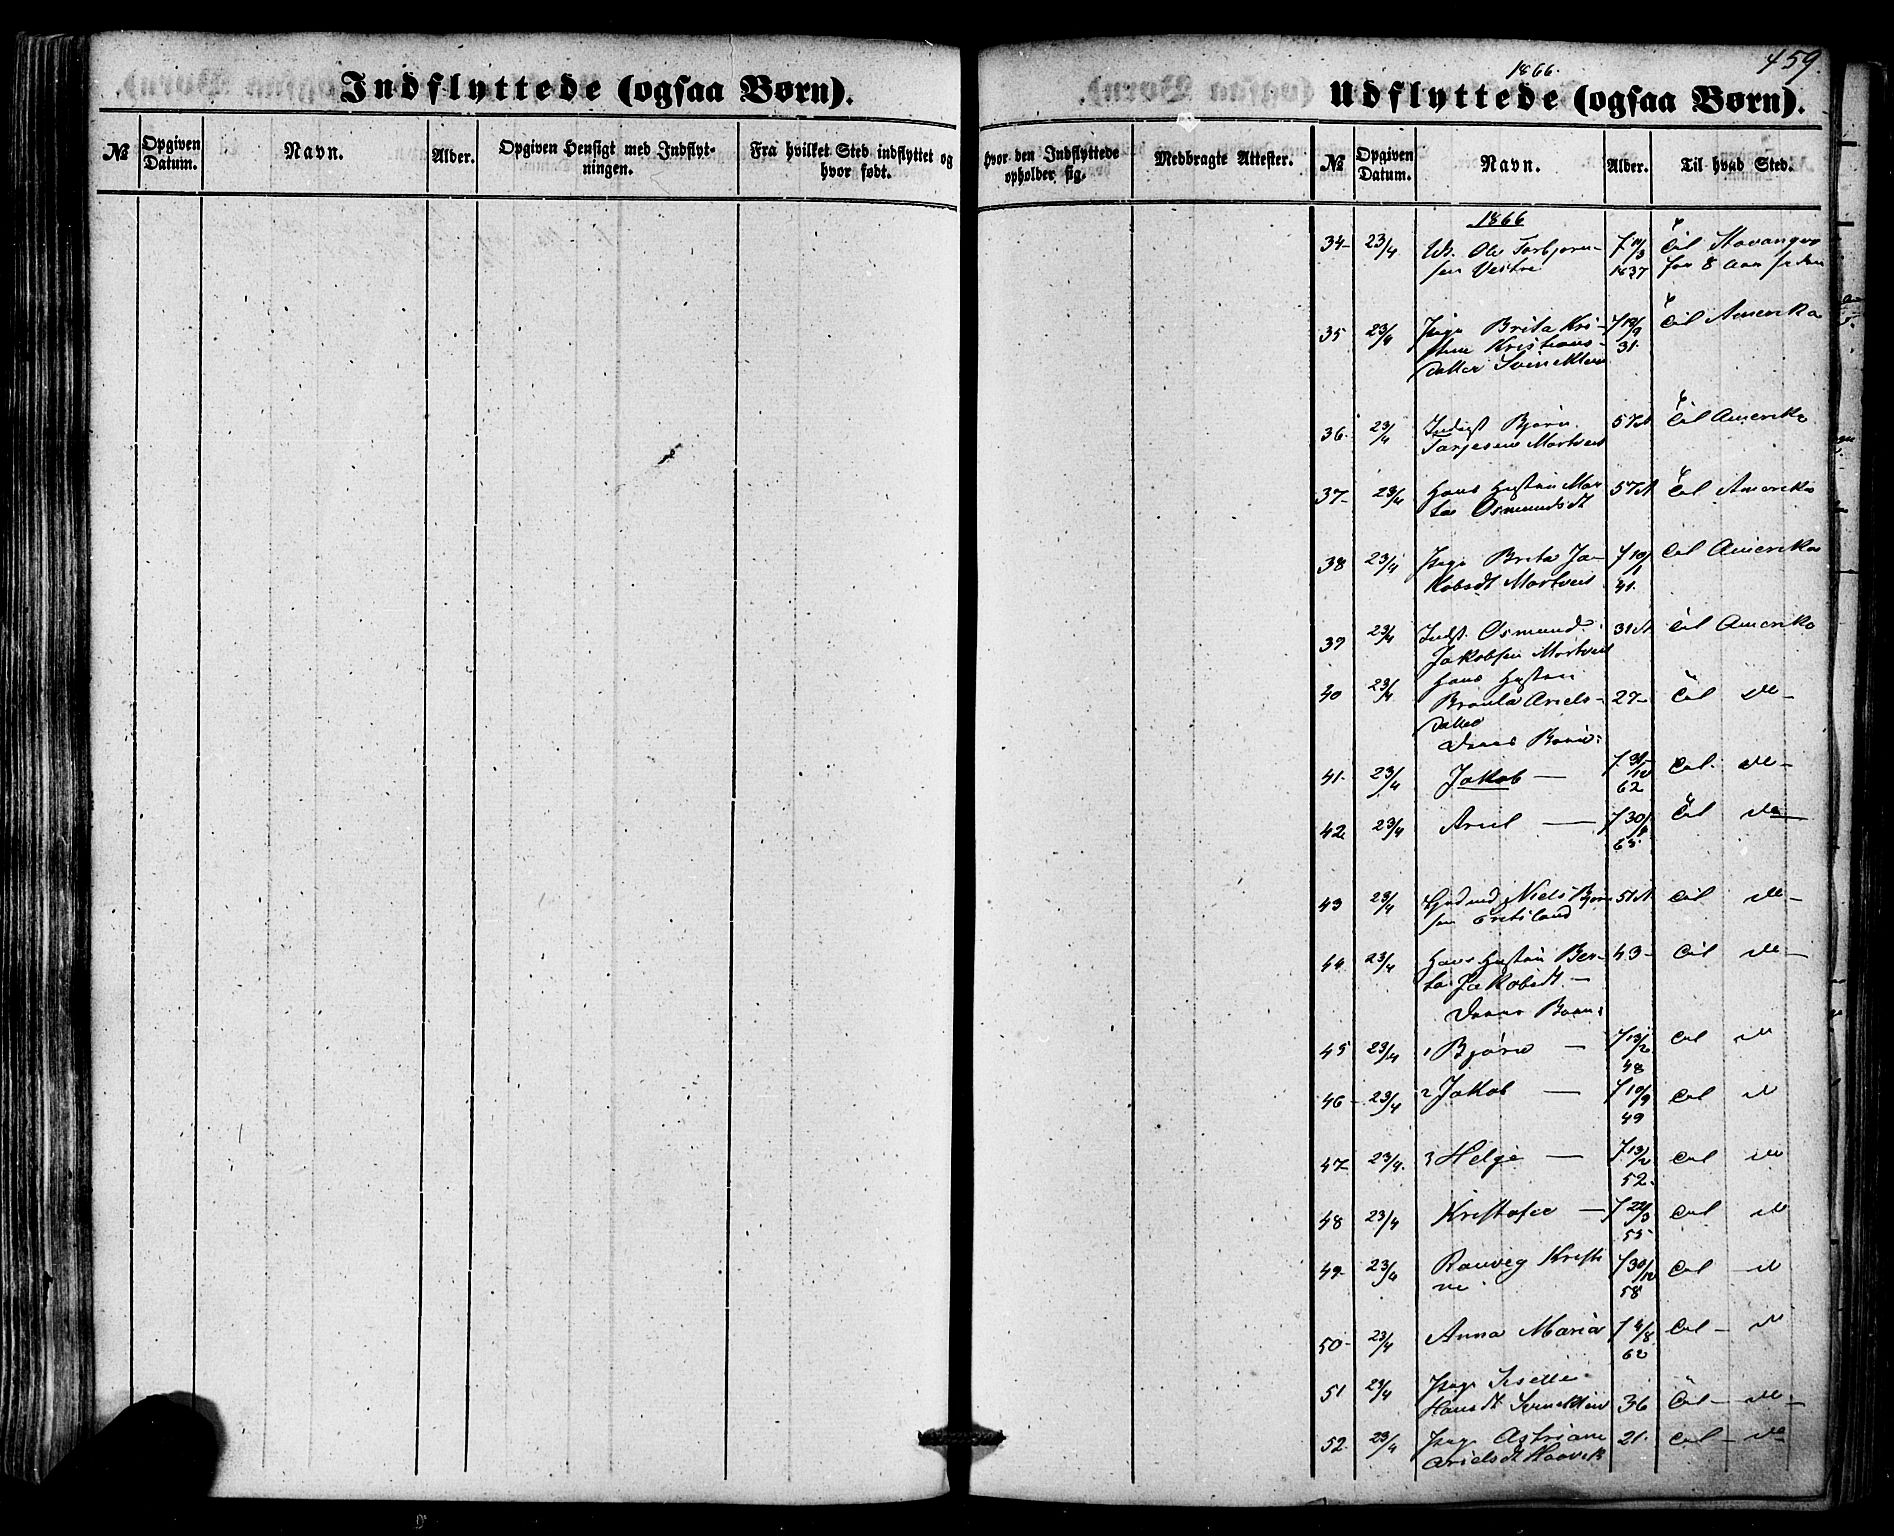 459.
1866.
Indflyttede (ogsaa Børn).
Udflyttede (ogsaa Børn).
№ Opgiven Datum. Navn. Alder. Opgiven Hensigt med Indflytningen. Fra hvilket Sted indflyttet og hvor født. hvor den Indflyttede opholder sig. Medbragte Attester. № Opgiven Datum. Navn. Alder. Til hvad Sted.
1866
34- 23/4 Ole Torbjørn- f til Stavanger
sen Vestre 1837 for 8 Aar siden
35 23/4 Pige Brita Kri- f 19/9 til Amerika
stine Kristians- 31.
datter
36- 23/4 Bjørn 57 A til Amerika
Tarjesen
37- 23/4 Hans Hustru Mar- 57 A til Amerika
ta Osmundsdt
38 23/4 Pige Brita Ja- f 10/1 til Amerika
kobsdt 41.
39 23/4 Indst. Osmund 31 A til Amerika
Jakobsen
40 23/4 Hans Hustru
Ariels- 27- til do-
datter
Deres Børn:
41- 23/4 Jakob - f 31/12 til do-
62
42 23/4 Ariel - f 30/ til do
65
43 23/4 Niels Bjørn- 51 A til do-
sen
44 23/4 Hans Hustru Ber- 43- til do-
ta Jakobsdt. -
Deres Børn:
45 23/4 1 Bjørn - f 13/2 til do
48
46- 23/4 2 Jakob - f 10/9 til do
49
47 23/4. 3 Helge - f 13/2 til do
52.
48 23/4 Kristofer - f 22/3 til do
55
49- 23/4 Ranveg Kristi f 30/12 til - do
ne 58
50- 23/4 Anna Maria f 4/8 til - do
62
51 23/4 Pige
Hansdt 36 til - do-
52. 23/4 Pige 21. til - do
Arielsdt Haavik